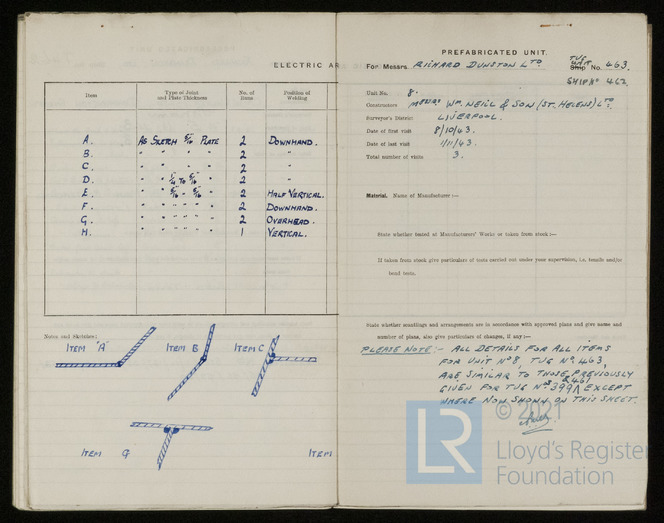 ELECTRIC AR
Item
Type of Joint and Plate Thickness
No. of Items
Position of Welding
A. AS SKETCH 5/16 PLATE 2 DOWNHAND.
B. " " " " 2 "
C. " " " " 2 "
D. " " 1/4 TO 5/16 " 2 "
E. " " 5/16 - 5/16 " 2 HALF VERTICAL.
F. " " " " " 2 DOWNHAND.
G. " " " " " 2 OVERHEAD.
H. " " " " " 1 VERTICAL.
Notes and Sketches:
ITEM 'A' ITEM B ITEM C
ITEM G ITEM
PREFABRICATED UNIT.
For Messrs. RICHARD DUNSTON LTD TUG Ship No. 463.
SHIP No 462
Unit No. 8.
Constructors MESSRS WM. NEILL & SON (ST. HELENS) LTD.
Surveyor's District LIVERPOOL.
Date of first visit 8/10/43.
Date of last visit 1/11/43.
Total number of visits 3.
Material. Name of Manufacturer:—
State whether tested at Manufacturers' Works or taken from stock:—
If taken from stock give particulars of tests carried out under your supervision, i.e. tensile and/or
bend tests.
State whether scantlings and arrangements are in accordance with approved plans and give name and
number of plans, also give particulars of changes, if any:—
PLEASE NOTE:- ALL DETAILS FOR ALL ITEMS
FOR UNIT No 8 TUG No 463,
ARE SIMILAR TO THOSE PREVIOUSLY
& 461
GIVEN FOR TUG Nos 399 EXCEPT
WHERE NOW SHOWN ON THIS SHEET.
© 2021
LR
Lloyd's Register
Foundation